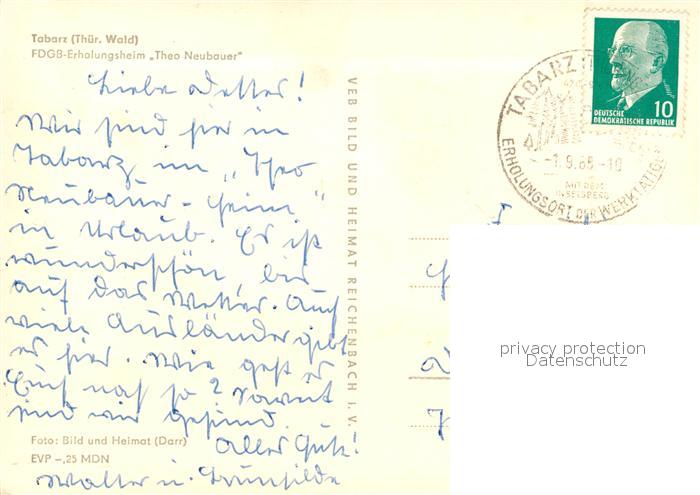 Tabarz (Thür. Wald)
FDGB-Erholungsheim „Theo Neubauer"
Liebe Vetter!
Wir sind hier in
Tabarz im „Theo
Neubauer-heim"
in Urlaub. Es ist
wunderschön, bis
auf das Wetter. Auch
viele Ausländer gibt
es hier. Wie geht es
Euch noch so? Soweit
sind wir gesund.
Alles Gute!
Walter u.
Foto: Bild und Heimat (Darr)
EVP -,25 MDN
VEB BILD UND HEIMAT REICHENBACH I. V.
TABARZ
-1.9.65-10
MIT DEM
INSELSBERG
ERHOLUNGSORT DER WERKTÄTIGEN
10
DEUTSCHE
DEMOKRATISCHE REPUBLIK
privacy protection
Datenschutz